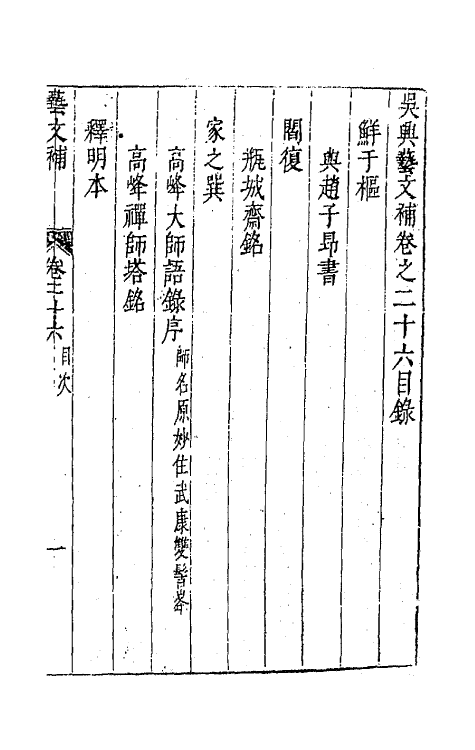 吳興藝文補卷之二十六目錄
鮮于樞
與趙子昂書
閻復
瓶城齋銘
家之巽
高峰大師語錄序師名原妙住武康雙髻峯
高峰禪師塔銘
釋明本
藝文補
卷二十六目次
一